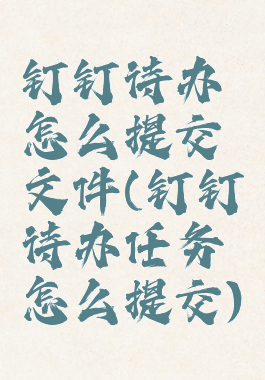 钉钉待办
怎么提交
文件(钉钉
待办任务
怎么提交)